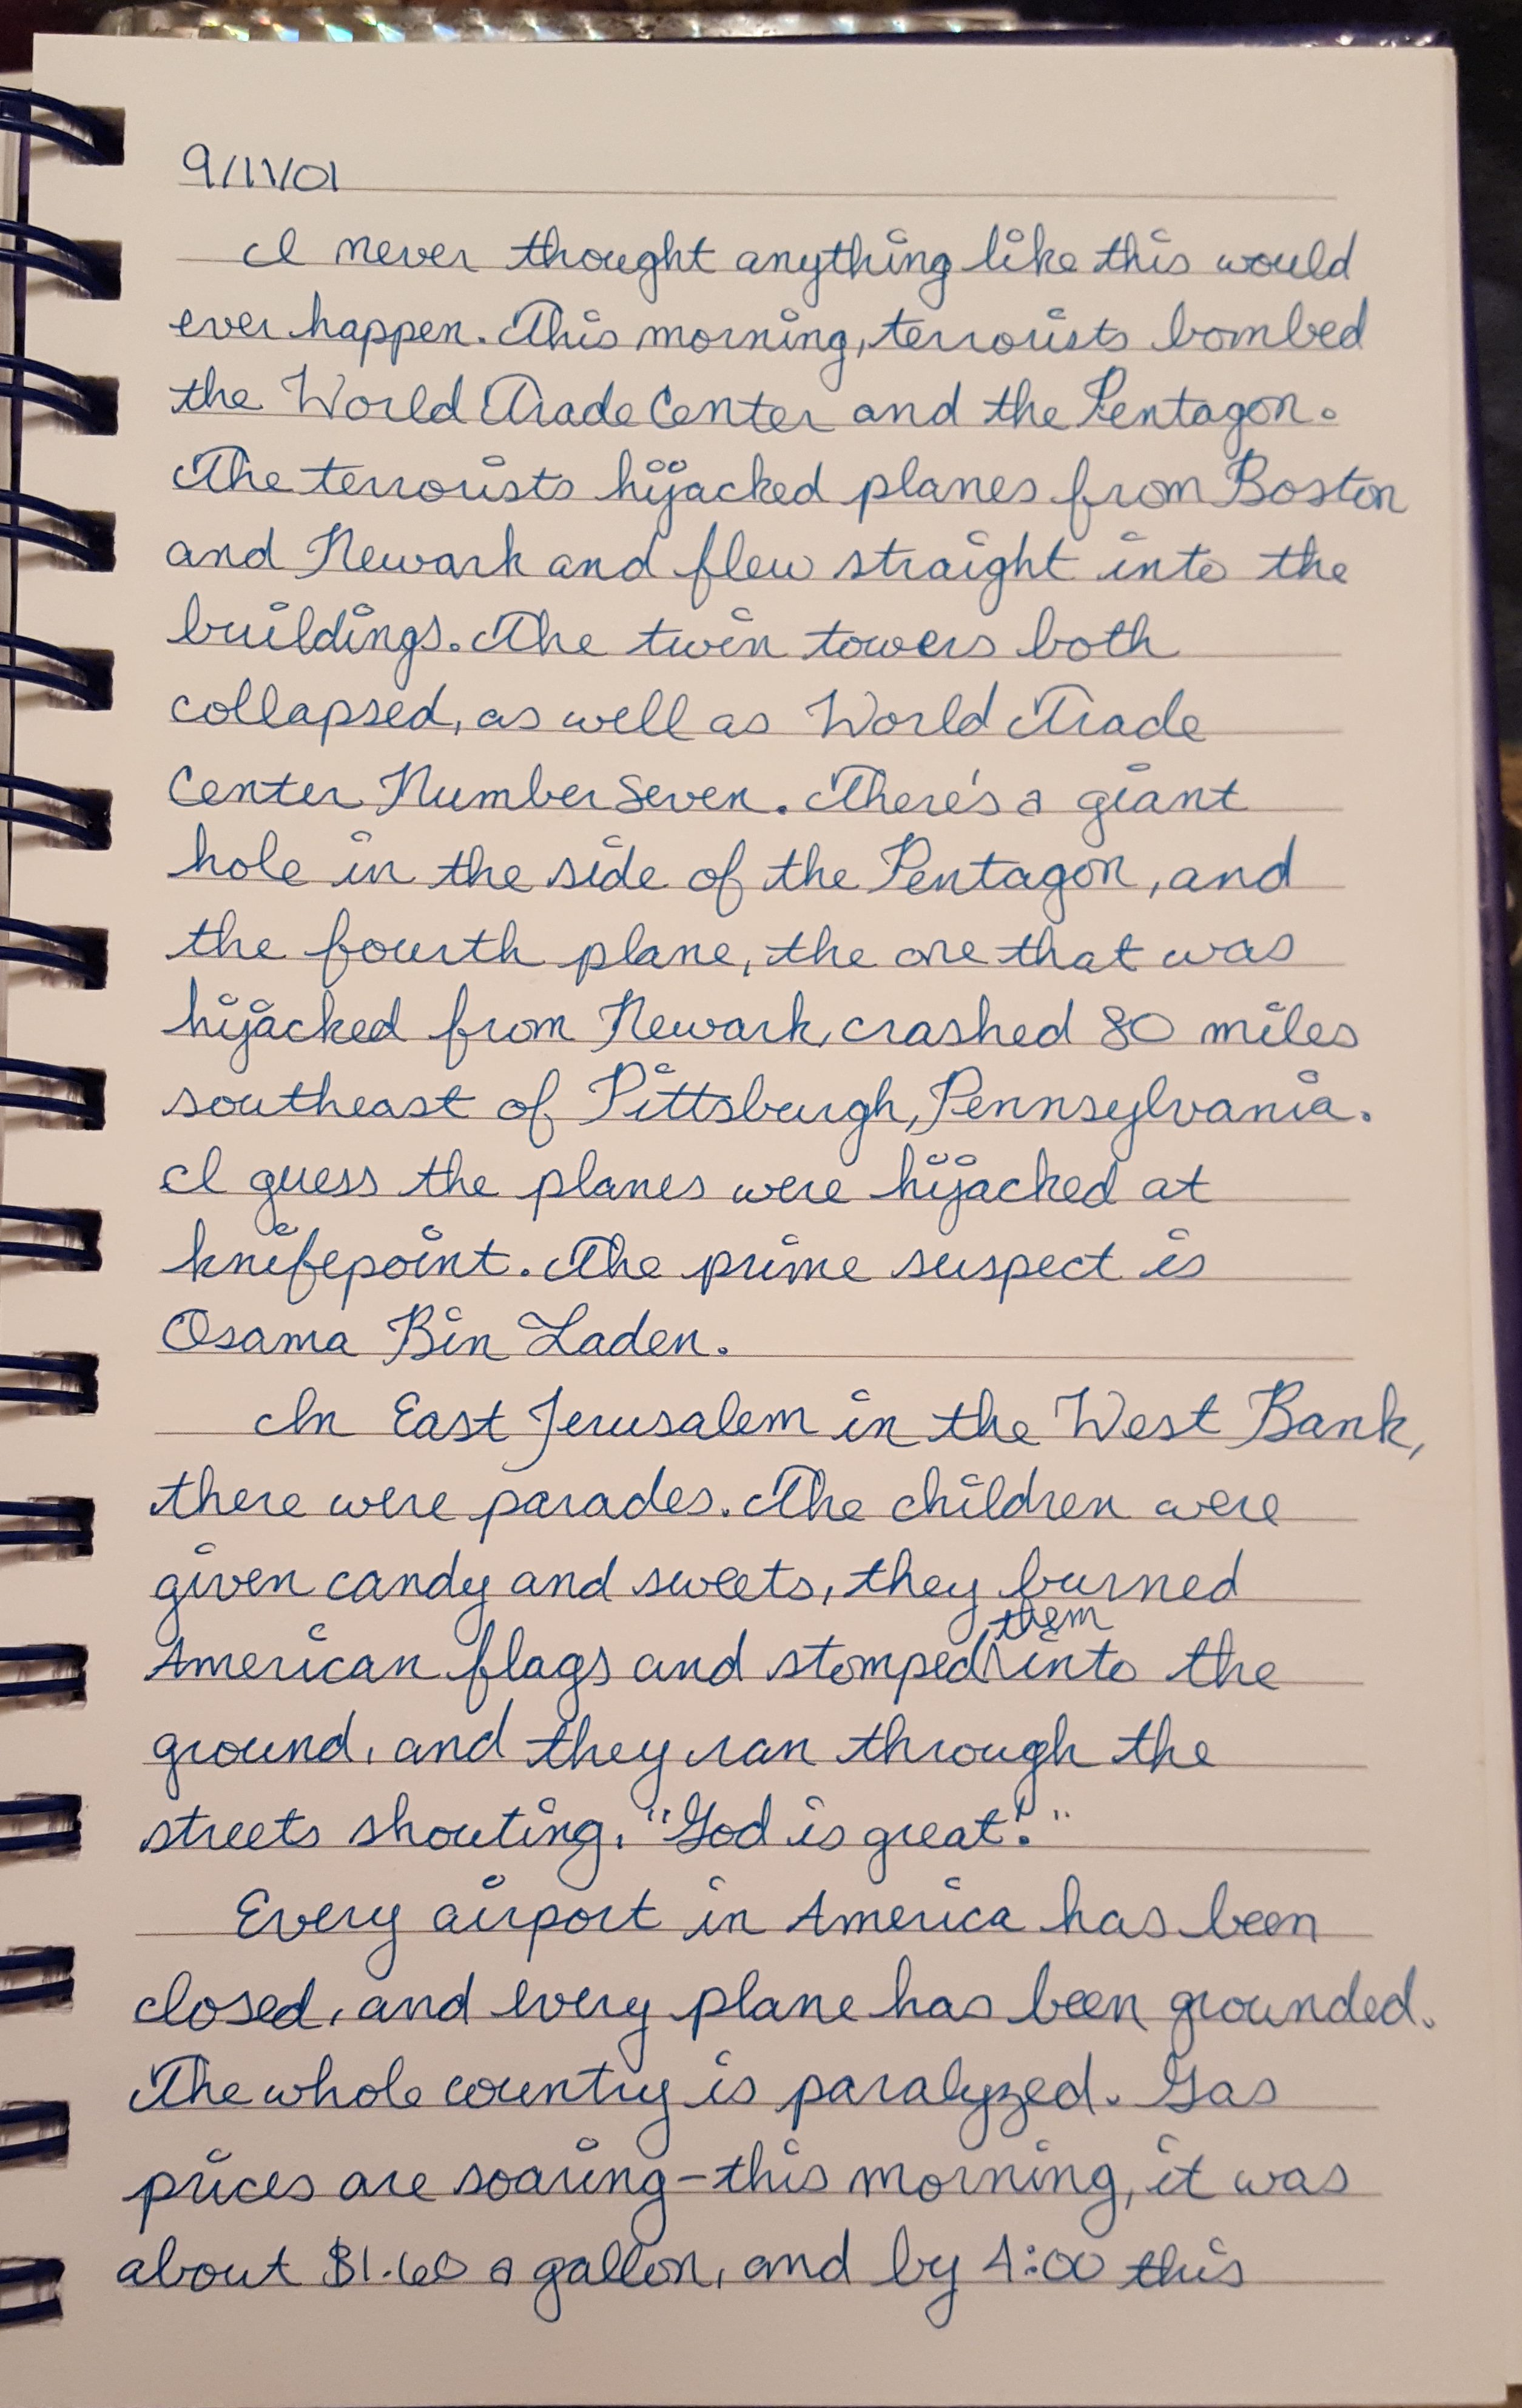 9/11/01
I never thought anything like this would
ever happen. This morning, terrorists bombed
the World Trade Center and the Pentagon.
The terrorists hijacked planes from Boston
and Newark and flew straight into the
buildings. The twin towers both
collapsed, as well as World Trade
Center Number Seven. There's a giant
hole in the side of the Pentagon, and
the fourth plane, the one that was
hijacked from Newark, crashed 80 miles
southeast of Pittsburgh, Pennsylvania.
I guess the planes were hijacked at
knifepoint. The prime suspect is
Osama Bin Laden.
In East Jerusalem in the West Bank,
there were parades. The children were
given candy and sweets, they burned
American flags and stomped them into the
ground, and they ran through the
streets shouting, "God is great!"
Every airport in America has been
closed, and every plane has been grounded.
The whole country is paralyzed. Gas
prices are soaring-this morning, it was
about $1.60 a gallon, and by 4:00 this